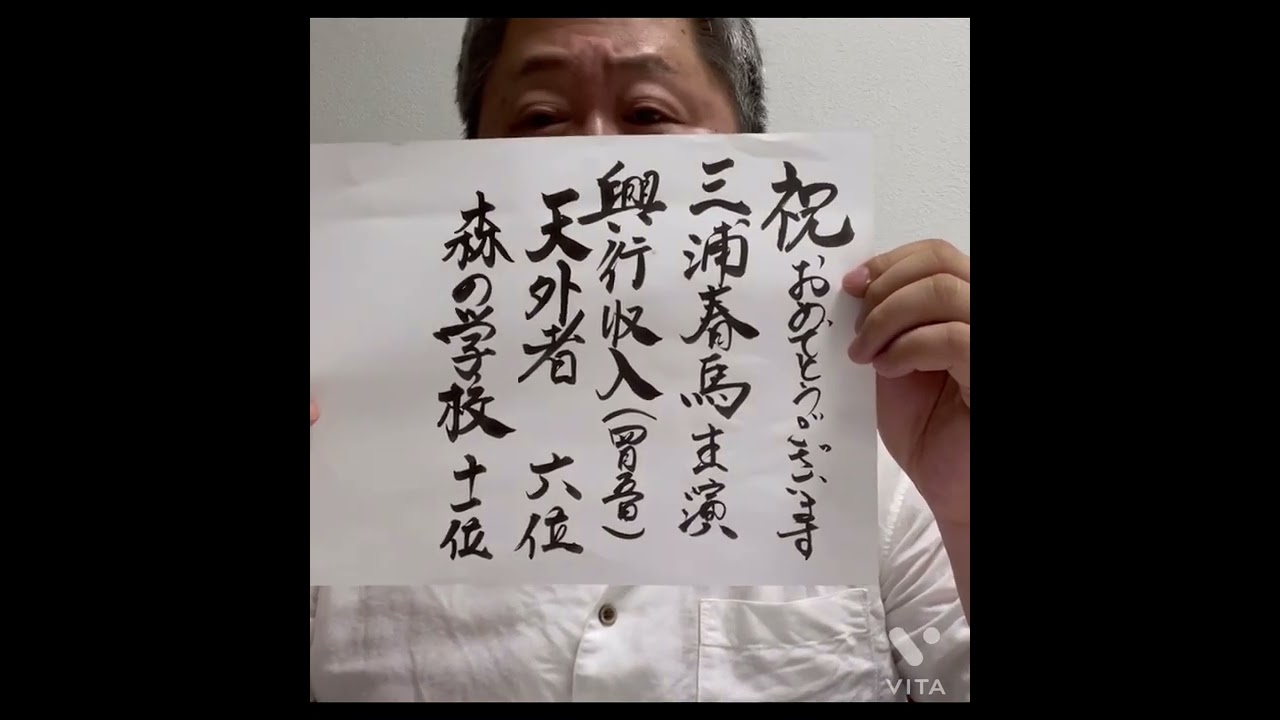 祝おめでとうございます
三浦春馬主演
興行収入(四月五日)
天外者 六位
森の学校 十一位
VITA